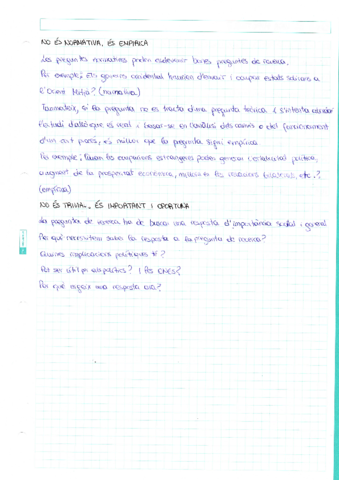 NO ÉS NORMATIVA, ÉS EMPÍRICA
Les preguntes normatives poden esdevenir bones preguntes de recerca.
Per exemple; Els governs occidentals haurien d'envair i ocupar estats sobirans a
l'Orient Mitjà? (normativa)
Tanmateix, si la pregunta no es tracta d'una pregunta teòrica i s'intenta
és real i basar-se en l'anàlisi dels canvis o del funcionament
d'un cert procés, és millor que la pregunta sigui empírica
Per exemple; Quan les ocupacions estrangeres poden generar estabilitat política,
augment de la prosperitat econòmica, millores en les relacions bilaterals, etc.?
(empírica)
NO ÉS TRIVIAL, ÉS IMPORTANT I OPORTUNA
La pregunta de recerca ha de buscar una resposta d'importància social i general
Per què necessitem saber la resposta a la pregunta de recerca?
Quines implicacions polítiques té?
Pot ser útil pels polítics? I les ONGs?
Per què esperar una resposta ara?